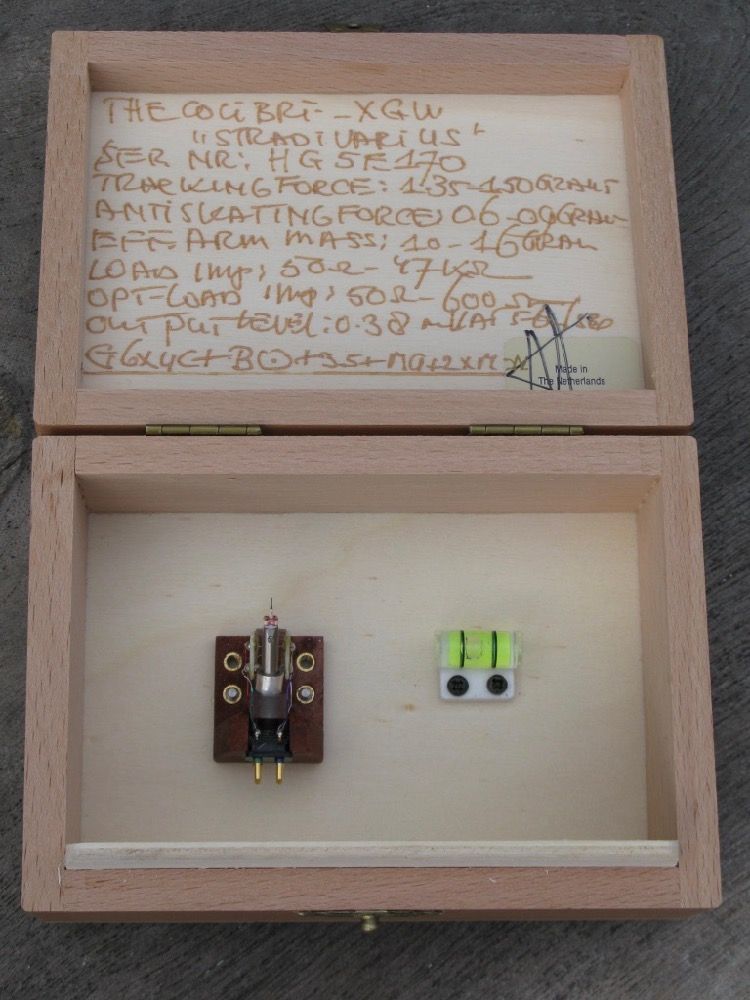 THE COLIBRI - XGW
"STRADIVARIUS"
SER NR: HG5F170
TRACKING FORCE: 1.35-1.50 GRAM
ANTISKATING FORCE: 0.6-0.9 GRAM
EFF. ARM MASS: 10-16 GRAM
LOAD IMP: 50Ω - 47KΩ
OPT-LOAD IMP: 50Ω - 600Ω
OUTPUT LEVEL: 0.38 mV AT
Made in
The Netherlands